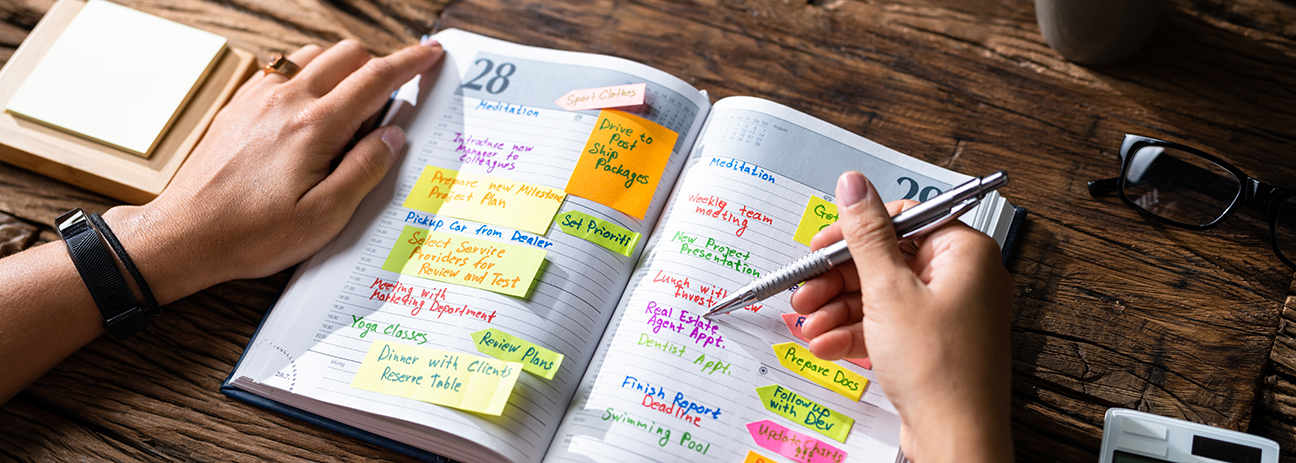 28
Meditation
Sport Clothes
Drive to
Post
Ship
Packages
Introduce new
Manager to
Colleagues
Prepare new Milestone
Project Plan
Set Prioriti
Pickup Car from Dealer
Select Service
Providers for
Review and Test
Meeting with
Marketing Department
Yoga Classes
Review Plans
Dinner with Clients
Reserve Table
August
Meditation
weekly team
meeting
Go
New Project
Presentation
Lunch with
Real Estate
Agent Appt.
Dentist Appt.
Prepare Docs
Finish Report
Deadline
Follow up
with Dev
Swimming Pool
Update Charts
!!!